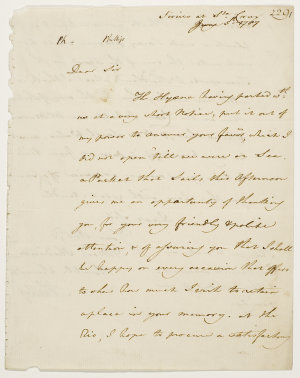 Sirius at Sta Cruz
June 5th 1787
Ph - Phillip
Dear Sir
The Hyaena having parted wth
us at a very short Notice, put it out of
my power to answer your favor, which I
did not open till we were at Sea.
a Packet that Sails this Afternoon
gives me an opportunity of thanking
you, for your very friendly & polite
attention, & of assuring you that I shall
be happy on every occasion that offers
to shew how much I wish to retain
a place in your memory. At the
Rio, I hope to procure a satisfactory